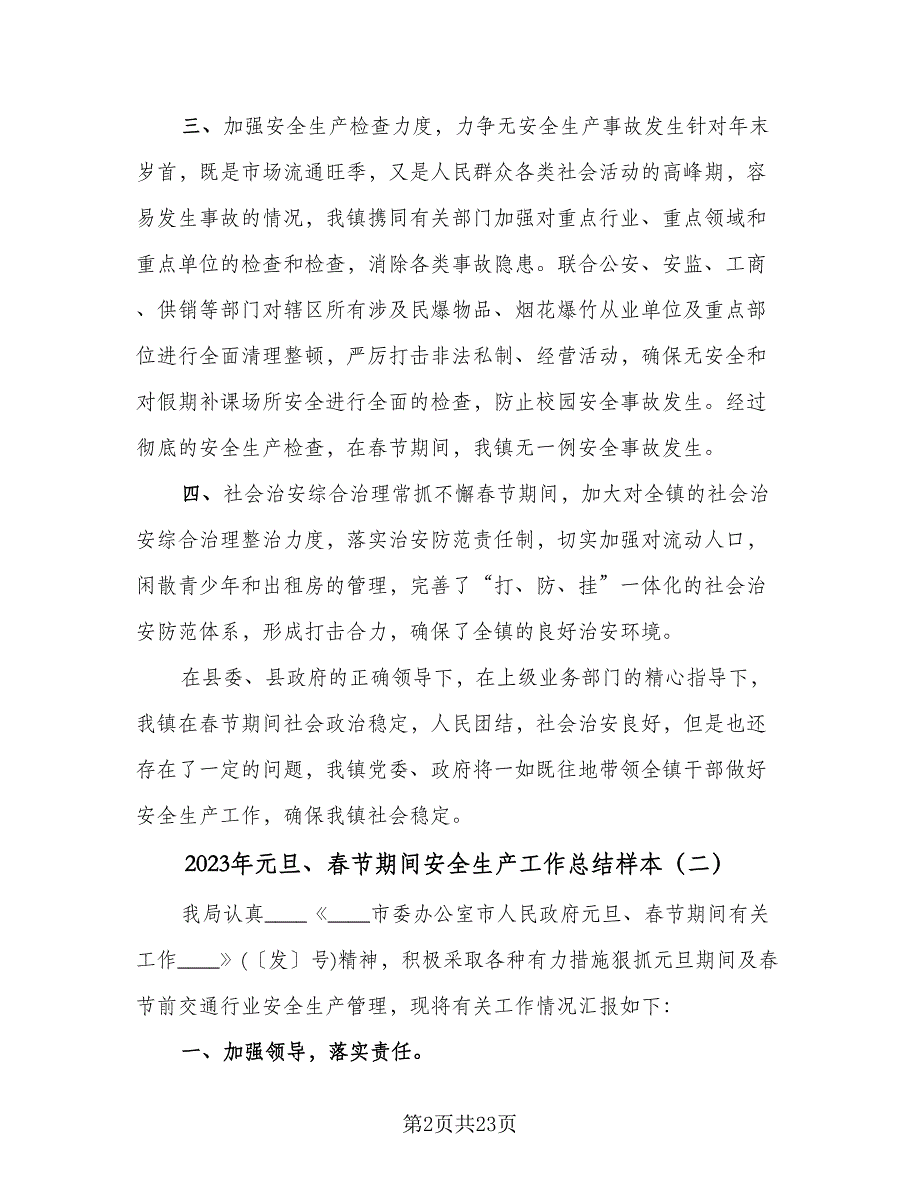 三、加强安全生产检查力度，力争无安全生产事故发生针对年末
岁首，既是市场流通旺季，又是人民群众各类社会活动的高峰期，容
易发生事故的情况，我镇携同有关部门加强对重点行业、重点领域和
重点单位的检查和检查，消除各类事故隐患。联合公安、安监、工商
、供销等部门对辖区所有涉及民爆物品、烟花爆竹从业单位及重点部
位进行全面清理整顿，严厉打击非法私制、经营活动，确保无安全和
对假期补课场所安全进行全面的检查，防止校园安全事故发生。经过
彻底的安全生产检查，在春节期间，我镇无一例安全事故发生。
四、社会治安综合治理常抓不懈春节期间，加大对全镇的社会治
安综合治理整治力度，落实治安防范责任制，切实加强对流动人口，
闲散青少年和出租房的管理，完善了“打、防、挂”一体化的社会治
安防范体系，形成打击合力，确保了全镇的良好治安环境。
在县委、县政府的正确领导下，在上级业务部门的精心指导下，
我镇在春节期间社会政治稳定，人民团结，社会治安良好，但是也还
存在了一定的问题，我镇党委、政府将一如既往地带领全镇干部做好
安全生产工作，确保我镇社会稳定。
2023年元旦、春节期间安全生产工作总结样本（二）
我局认真____《____市委办公室市人民政府元旦、春节期间有关
工作____》(〔发〕号)精神，积极采取各种有力措施狠抓元旦期间及春
节前交通行业安全生产管理，现将有关工作情况汇报如下：
一、加强领导，落实责任。
第2页共23页